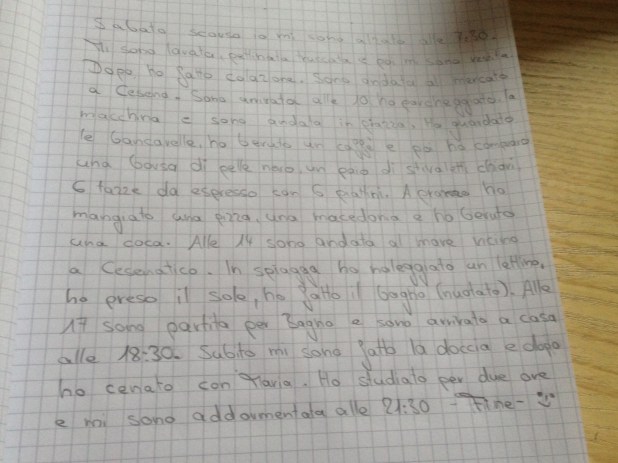 Sabato scorso io mi sono alzata alle 7:30.
Mi sono lavata, pettinata, truccata e poi mi sono vestita.
Dopo, ho fatto colazione. Sono andata al mercato
a Cesena. Sono arrivata alle 10 ho parcheggiato la
macchina e sono andata in piazza. Ho guardato
le bancarelle, ho bevuto un caffè e poi ho comprato
una borsa di pelle nera, un paio di stivaletti chiari,
6 tazze da espresso con 6 piattini. A pranzo ho
mangiato una pizza, una macedonia e ho bevuto
una coca. Alle 14 sono andata al mare vicino
a Cesenatico. In spiaggia ho noleggiato un lettino,
ho preso il sole, ho fatto il bagno (nuotato). Alle
17 sono partita per Bagno e sono arrivata a casa
alle 18:30. Subito mi sono fatto la doccia e dopo
ho cenato con Maria. Ho studiato per due ore
e mi sono addormentata alle 21:30 - Fine -